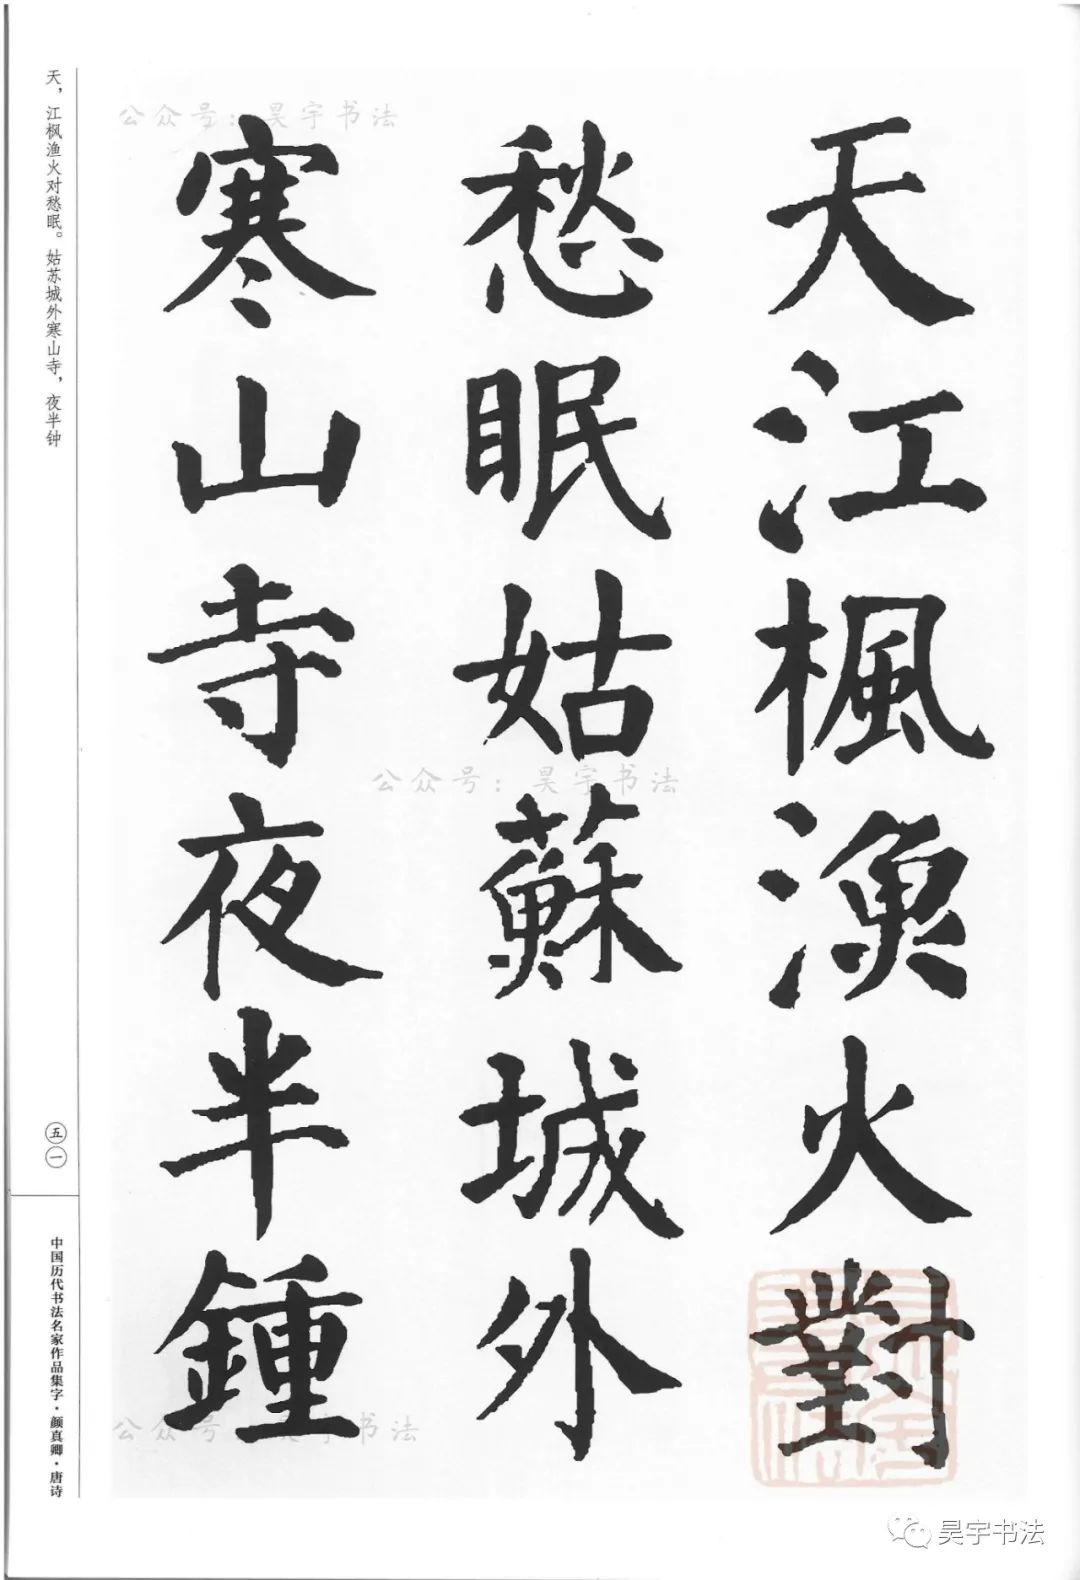 天江楓漁火對
愁眠姑蘇城外
寒山寺夜半鍾
天，江枫渔火对愁眠。姑苏城外寒山寺，夜半钟
五一
中国历代书法名家作品集字·颜真卿·唐诗
公众号：昊宇书法
公众号：昊宇书法
公众号：昊宇书法
昊宇书法